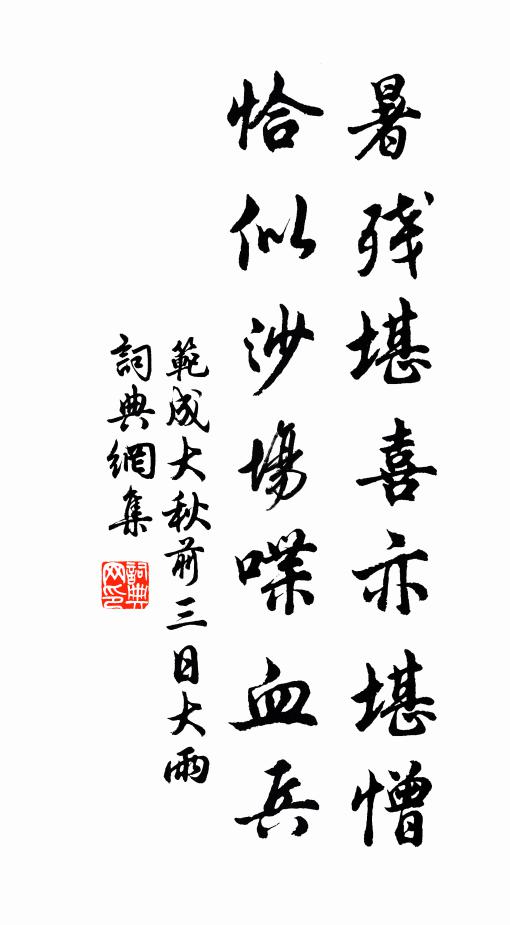 暑残堪喜亦堪憎
恰似沙場喋血兵
範成大秋前三日大雨
詞典網集
詞典網印